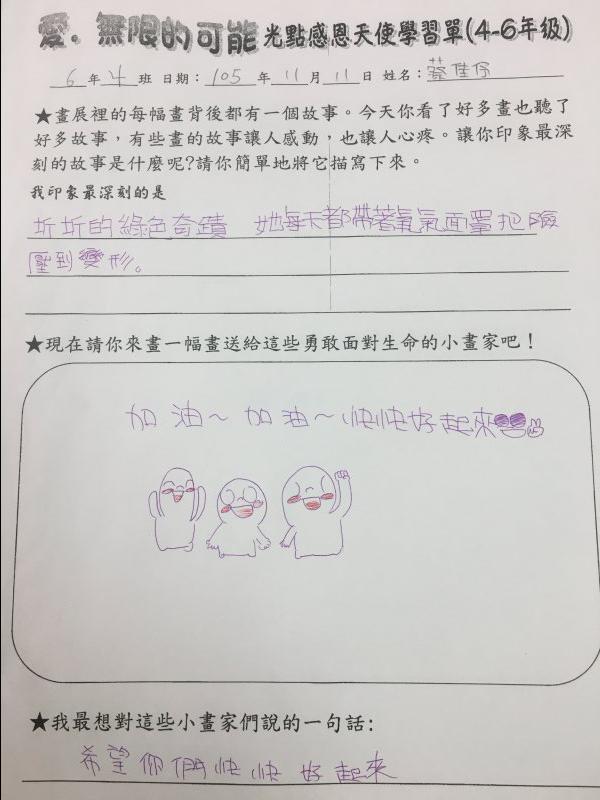 愛．無限的可能 光點感恩天使學習單(4-6年級)
6年4班 日期：105年11月11日 姓名：蔡佳伶
★畫展裡的每幅畫背後都有一個故事。今天你看了好多畫也聽了
好多故事，有些畫的故事讓人感動，也讓人心疼。讓你印象最深
刻的故事是什麼呢?請你簡單地將它描寫下來。
我印象最深刻的是
圻圻的綠色奇蹟 她每天都帶著氧氣面罩把臉
壓到變形。
★現在請你來畫一幅畫送給這些勇敢面對生命的小畫家吧！
加油～加油～快快好起來
★我最想對這些小畫家們說的一句話:
希望你們快快好起來